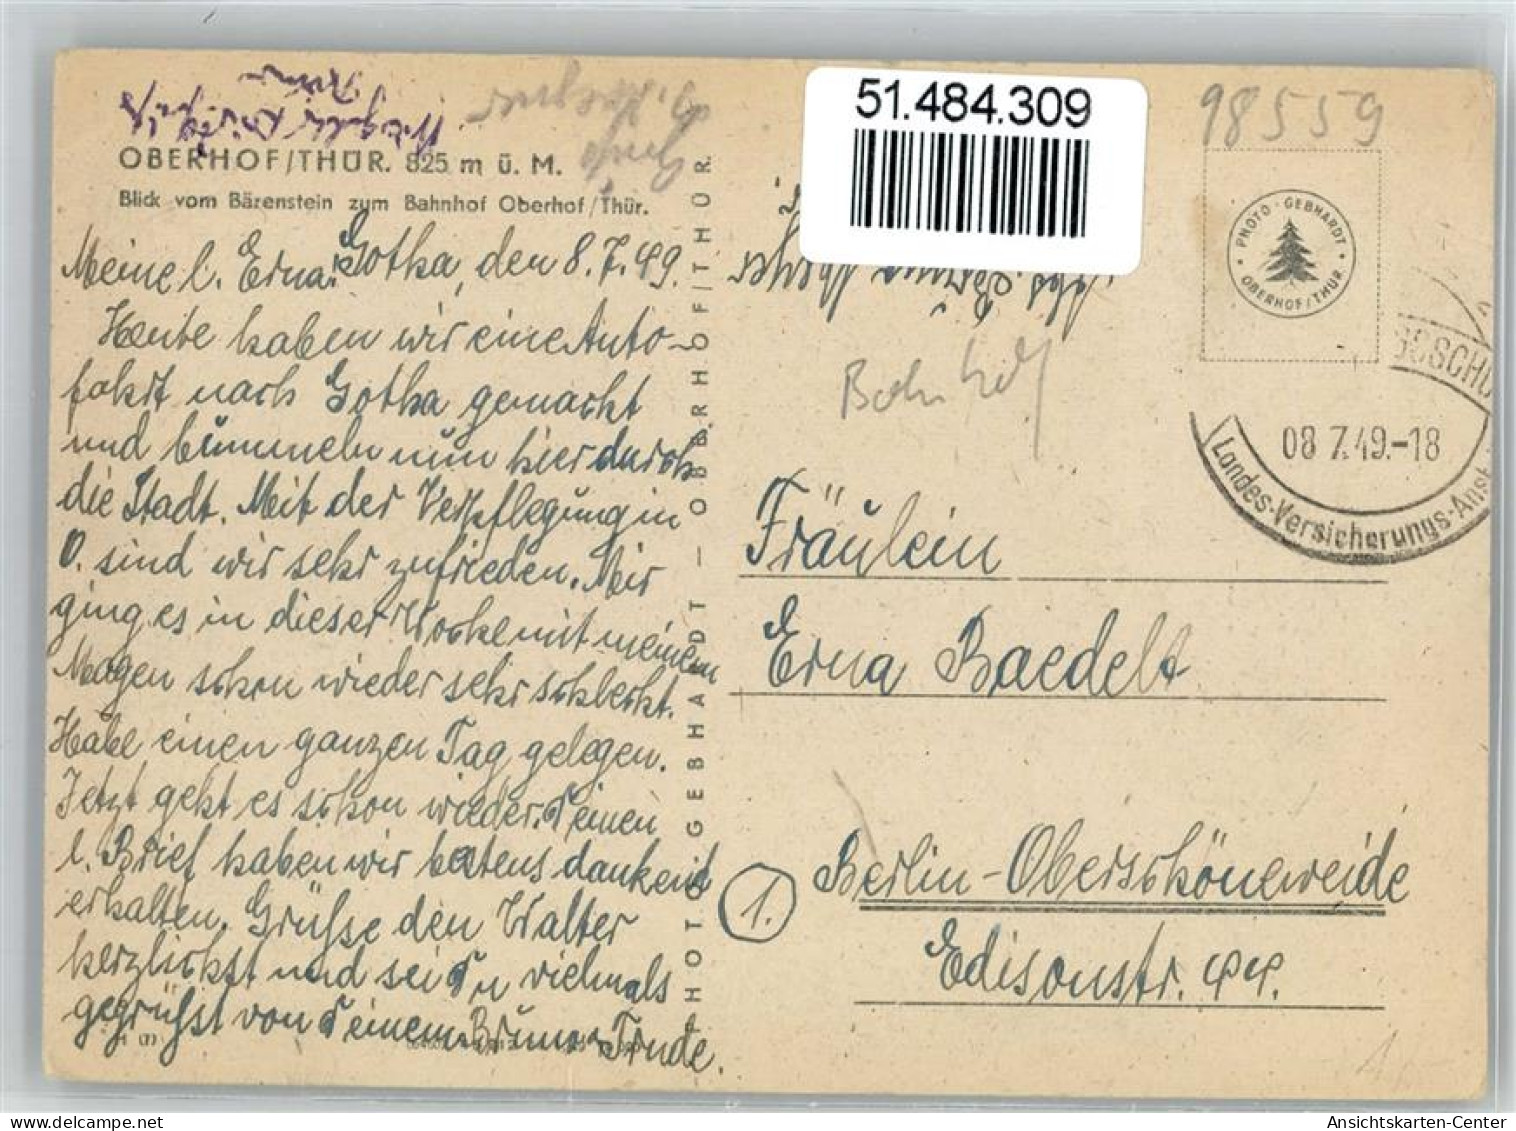 51.484.309
98559
OBERHOF/THÜR. 825 m ü. M.
Blick vom Bärenstein zum Bahnhof Oberhof/Thür.
Gotha, den 8.7.49.
Meine l. Erna!
Heute haben wir eine Auto-
fahrt nach Gotha gemacht
und bummeln nun hier durch
die Stadt. Mit der Verpflegung in
O. sind wir sehr zufrieden. Mir
ging es in dieser Woche mit meinem
Magen schon wieder sehr schlecht.
Habe einen ganzen Tag gelegen.
Jetzt geht es schon wieder. Deinen
l. Brief haben wir bestens dankend
erhalten. Grüsse den Walter
herzlichst und sei Du vielmals
gegrüsst von Deinem Bruno u. Trude.
PHOTO GEBHARDT — OBERHOF/THÜR
PHOTO · GEBHARDT
OBERHOF/THÜR
08 7.49.-18
Landes-Versicherungs-Anst
Bahnhof
Fräulein
Erna Baedelt
1.
Berlin-Oberschöneweide
Edisonstr. 44.
Ansichtskarten-Center.com
Ansichtskarten-Center